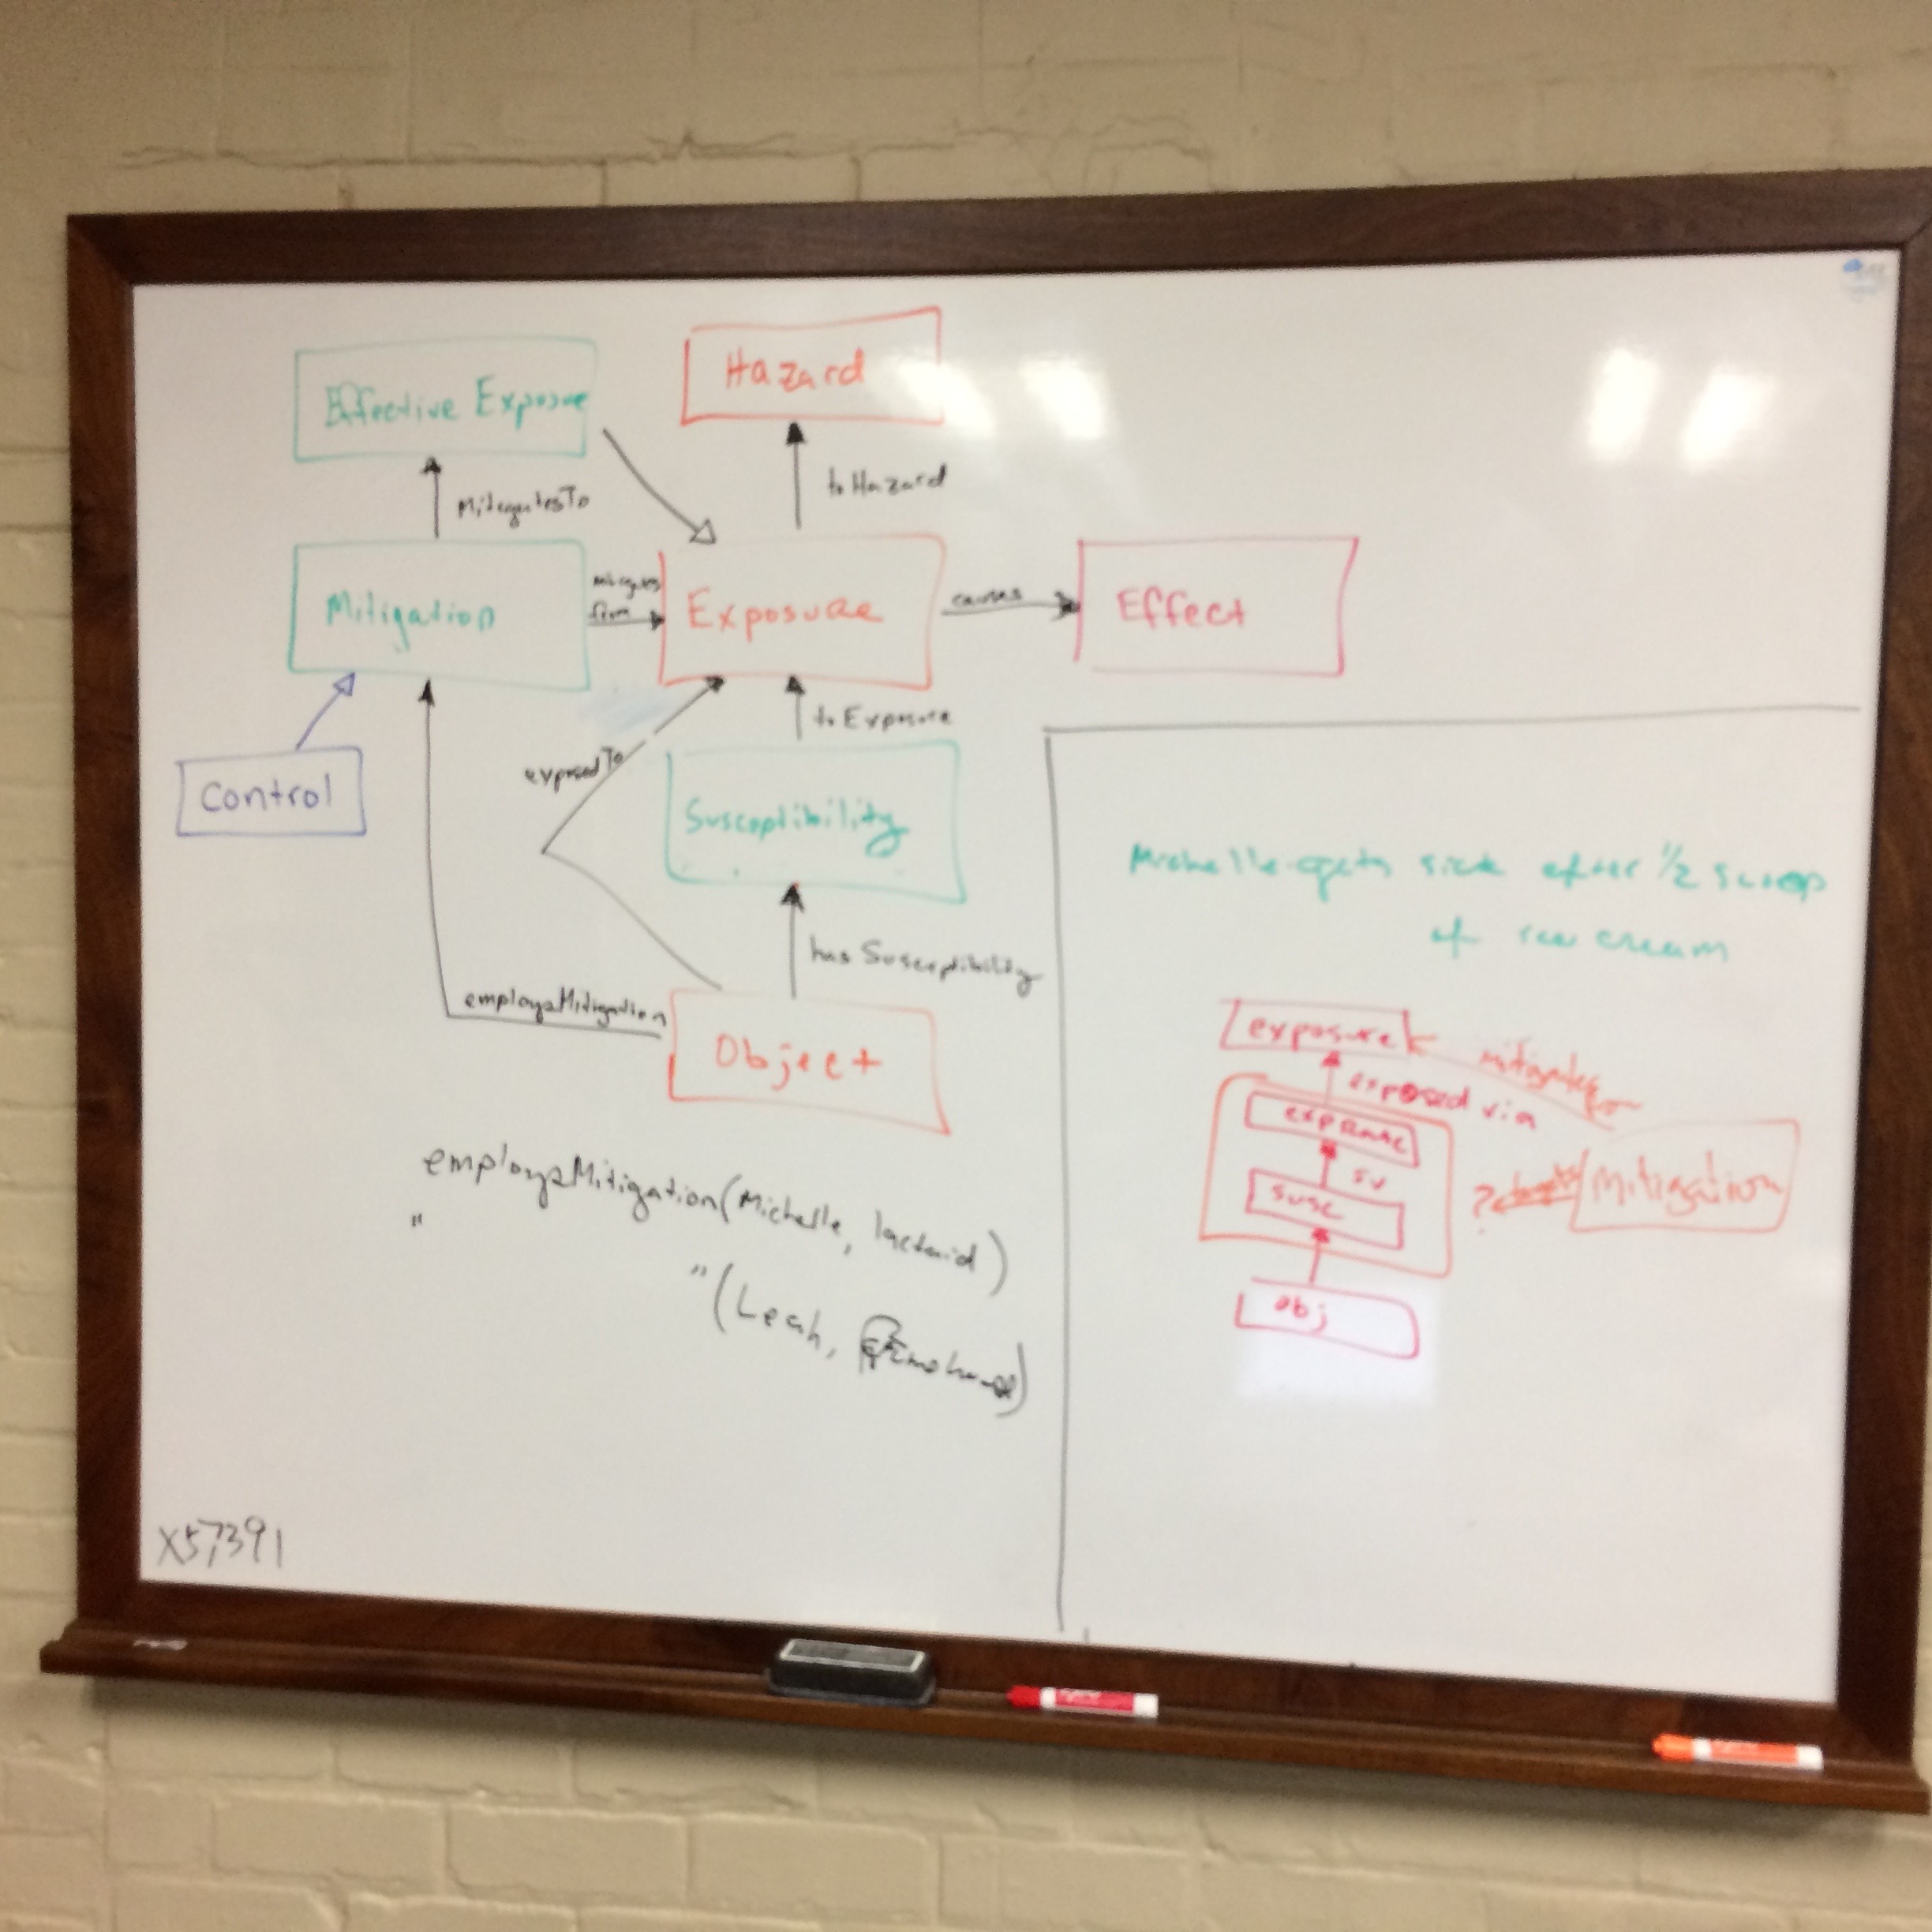 Effective Exposure
Hazard
MitigatesTo
to Hazard
Mitigation
mitigates
from
Exposure
causes
Effect
exposedTo
to Exposure
Control
Susceptibility
has Susceptibility
employsMitigation
Object
employsMitigation(Michelle, lactaid)
"
"(Leah,
X57391
Michelle gets sick after 1/2 scoop
of ice cream
exposure
mitigates
exposed via
susc
Mitigation
?
obj